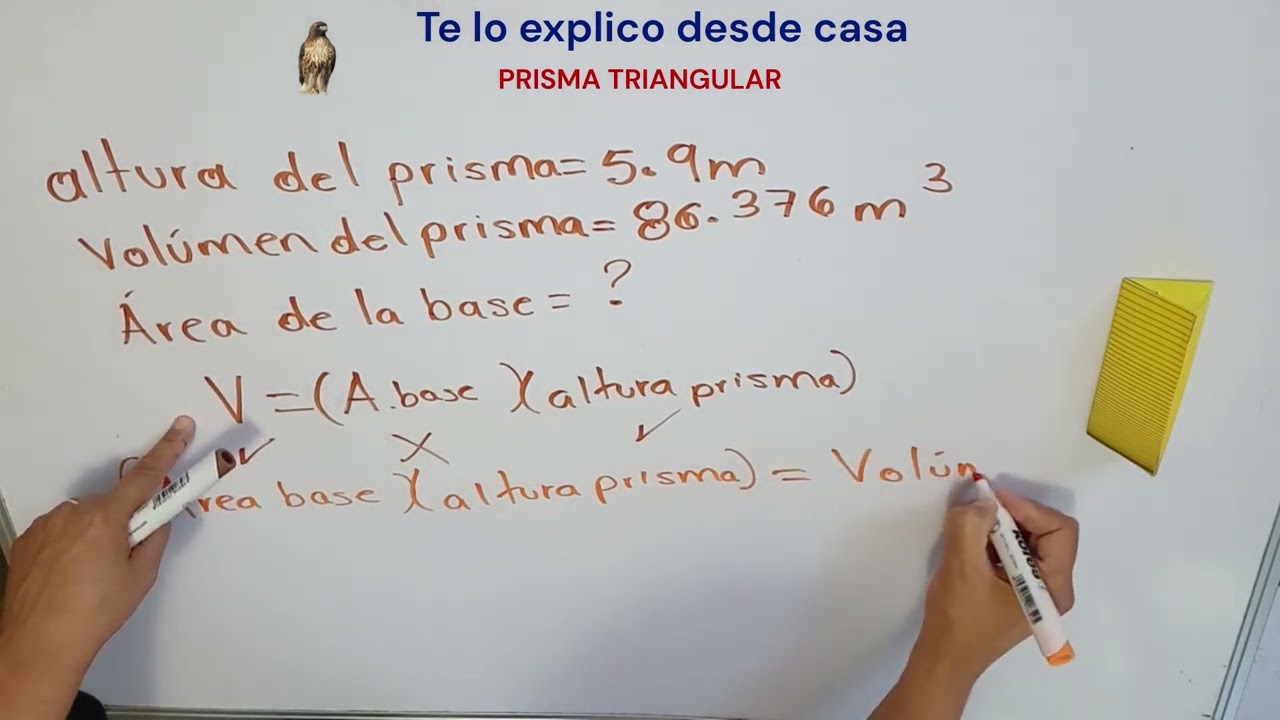 Te lo explico desde casa
PRISMA TRIANGULAR
altura del prisma= 5.9m
Volúmen del prisma= 86.376 m³
Área de la base= ?
V =(A.base )(altura prisma)
rea base )(altura prisma) = Volúm